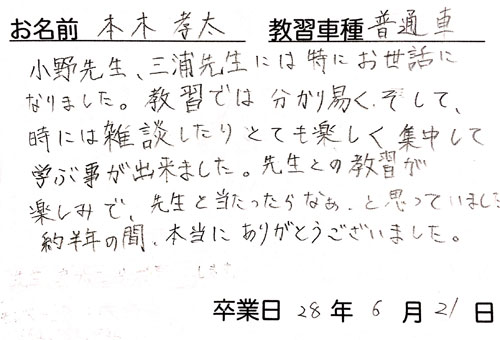 お名前 本木孝太 教習車種 普通車
小野先生、三浦先生には特にお世話に
なりました。教習では分かり易く、そして、
時には雑談したりとても楽しく集中して
学ぶ事が出来ました。先生との教習が
楽しみで、先生と当たったらなぁ、と思っていました
約半年の間、本当にありがとうございました。
卒業日 28年 6月 21日